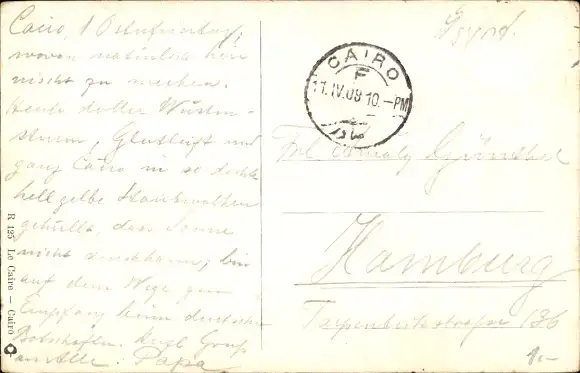 Cairo, 1 Osterfeiertag,
wovon natürlich hier
nicht zu merken.
Heute doller Wüsten-
sturm, Glutluft und
ganz Cairo in so dichte
hellgelbe Staubwolken
gehüllt, dass Sonne
nicht durchkann; bin
auf dem Wege zum
Empfang beim deutschen
Botschafter. Herzl Gruß
an Alle. Papa
Egypt.
CAIRO
F
11.IV.09 10.-PM
Frl Günther
Hamburg
Tarpenbekstrasse 136
1.-
R 125 Le Caire — Cairo